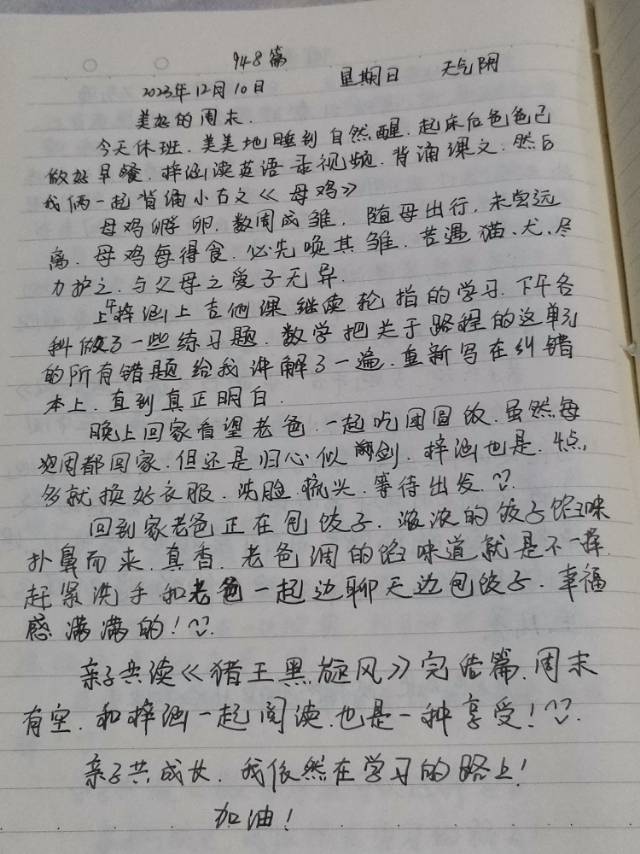 948篇
2023年12月10日 星期日 天气阴
美好的周末.
今天休班.美美地睡到自然醒.起床后爸爸已
做好早餐.梓涵读英语录视频.背诵课文.然后
我俩一起背诵小古文《母鸡》
母鸡孵卵.数周成雏.随母出行.未尝远
离.母鸡每得食.必先唤其雏.若遇猫、犬、尽
力护之.与父母之爱子无异.
上午梓涵上吉他课继续轮指的学习.下午各
科做了一些练习题.数学把关于路程的这单元
的所有错题给我讲解了一遍.重新写在纠错
本上.直到真正明白.
晚上回家看望老爸.一起吃团圆饭.虽然每
周都回家.但还是归心似剑.梓涵也是.4点
多就换好衣服.洗脸.梳头.等待出发.
回到家老爸正在包饺子.浓浓的饺子馅味
扑鼻而来.真香.老爸调的馅味道就是不一样.
赶紧洗手和老爸一起边聊天边包饺子.幸福
感满满的!
亲子共读《猪王黑旋风》完结篇.周末
有空.和梓涵一起阅读.也是一种享受!
亲子共成长.我依然在学习的路上!
加油!